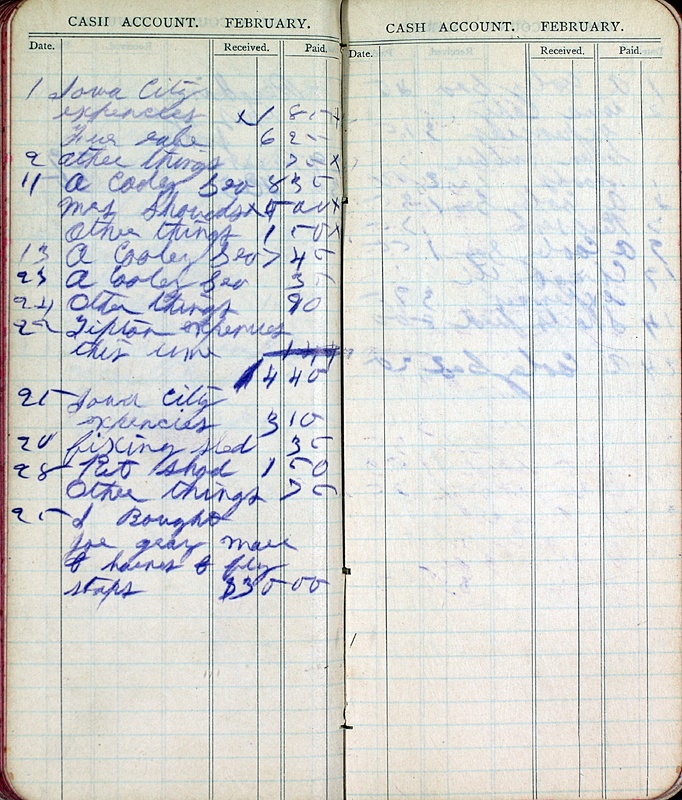 CASH ACCOUNT. FEBRUARY.
Date. Received. Paid.
1 Iowa City
expencies x 1 85 x
6 25
9 other things x
11 A Cooley Seo 8 35
Mrs x 5 x
Other things 1 50 x
13 A Cooley Seo 7 45
23 A Cooley Seo 35
24 Other things 90
Tipton expencies
this time
14 40
25 Iowa City
expencies 3 10
fixing sled 35
28 Pet Shod 1 50
Other things 75
25 I Bought
Joe gray mare
& harnes & fly
straps $35 00
CASH ACCOUNT. FEBRUARY.
Date. Received. Paid.